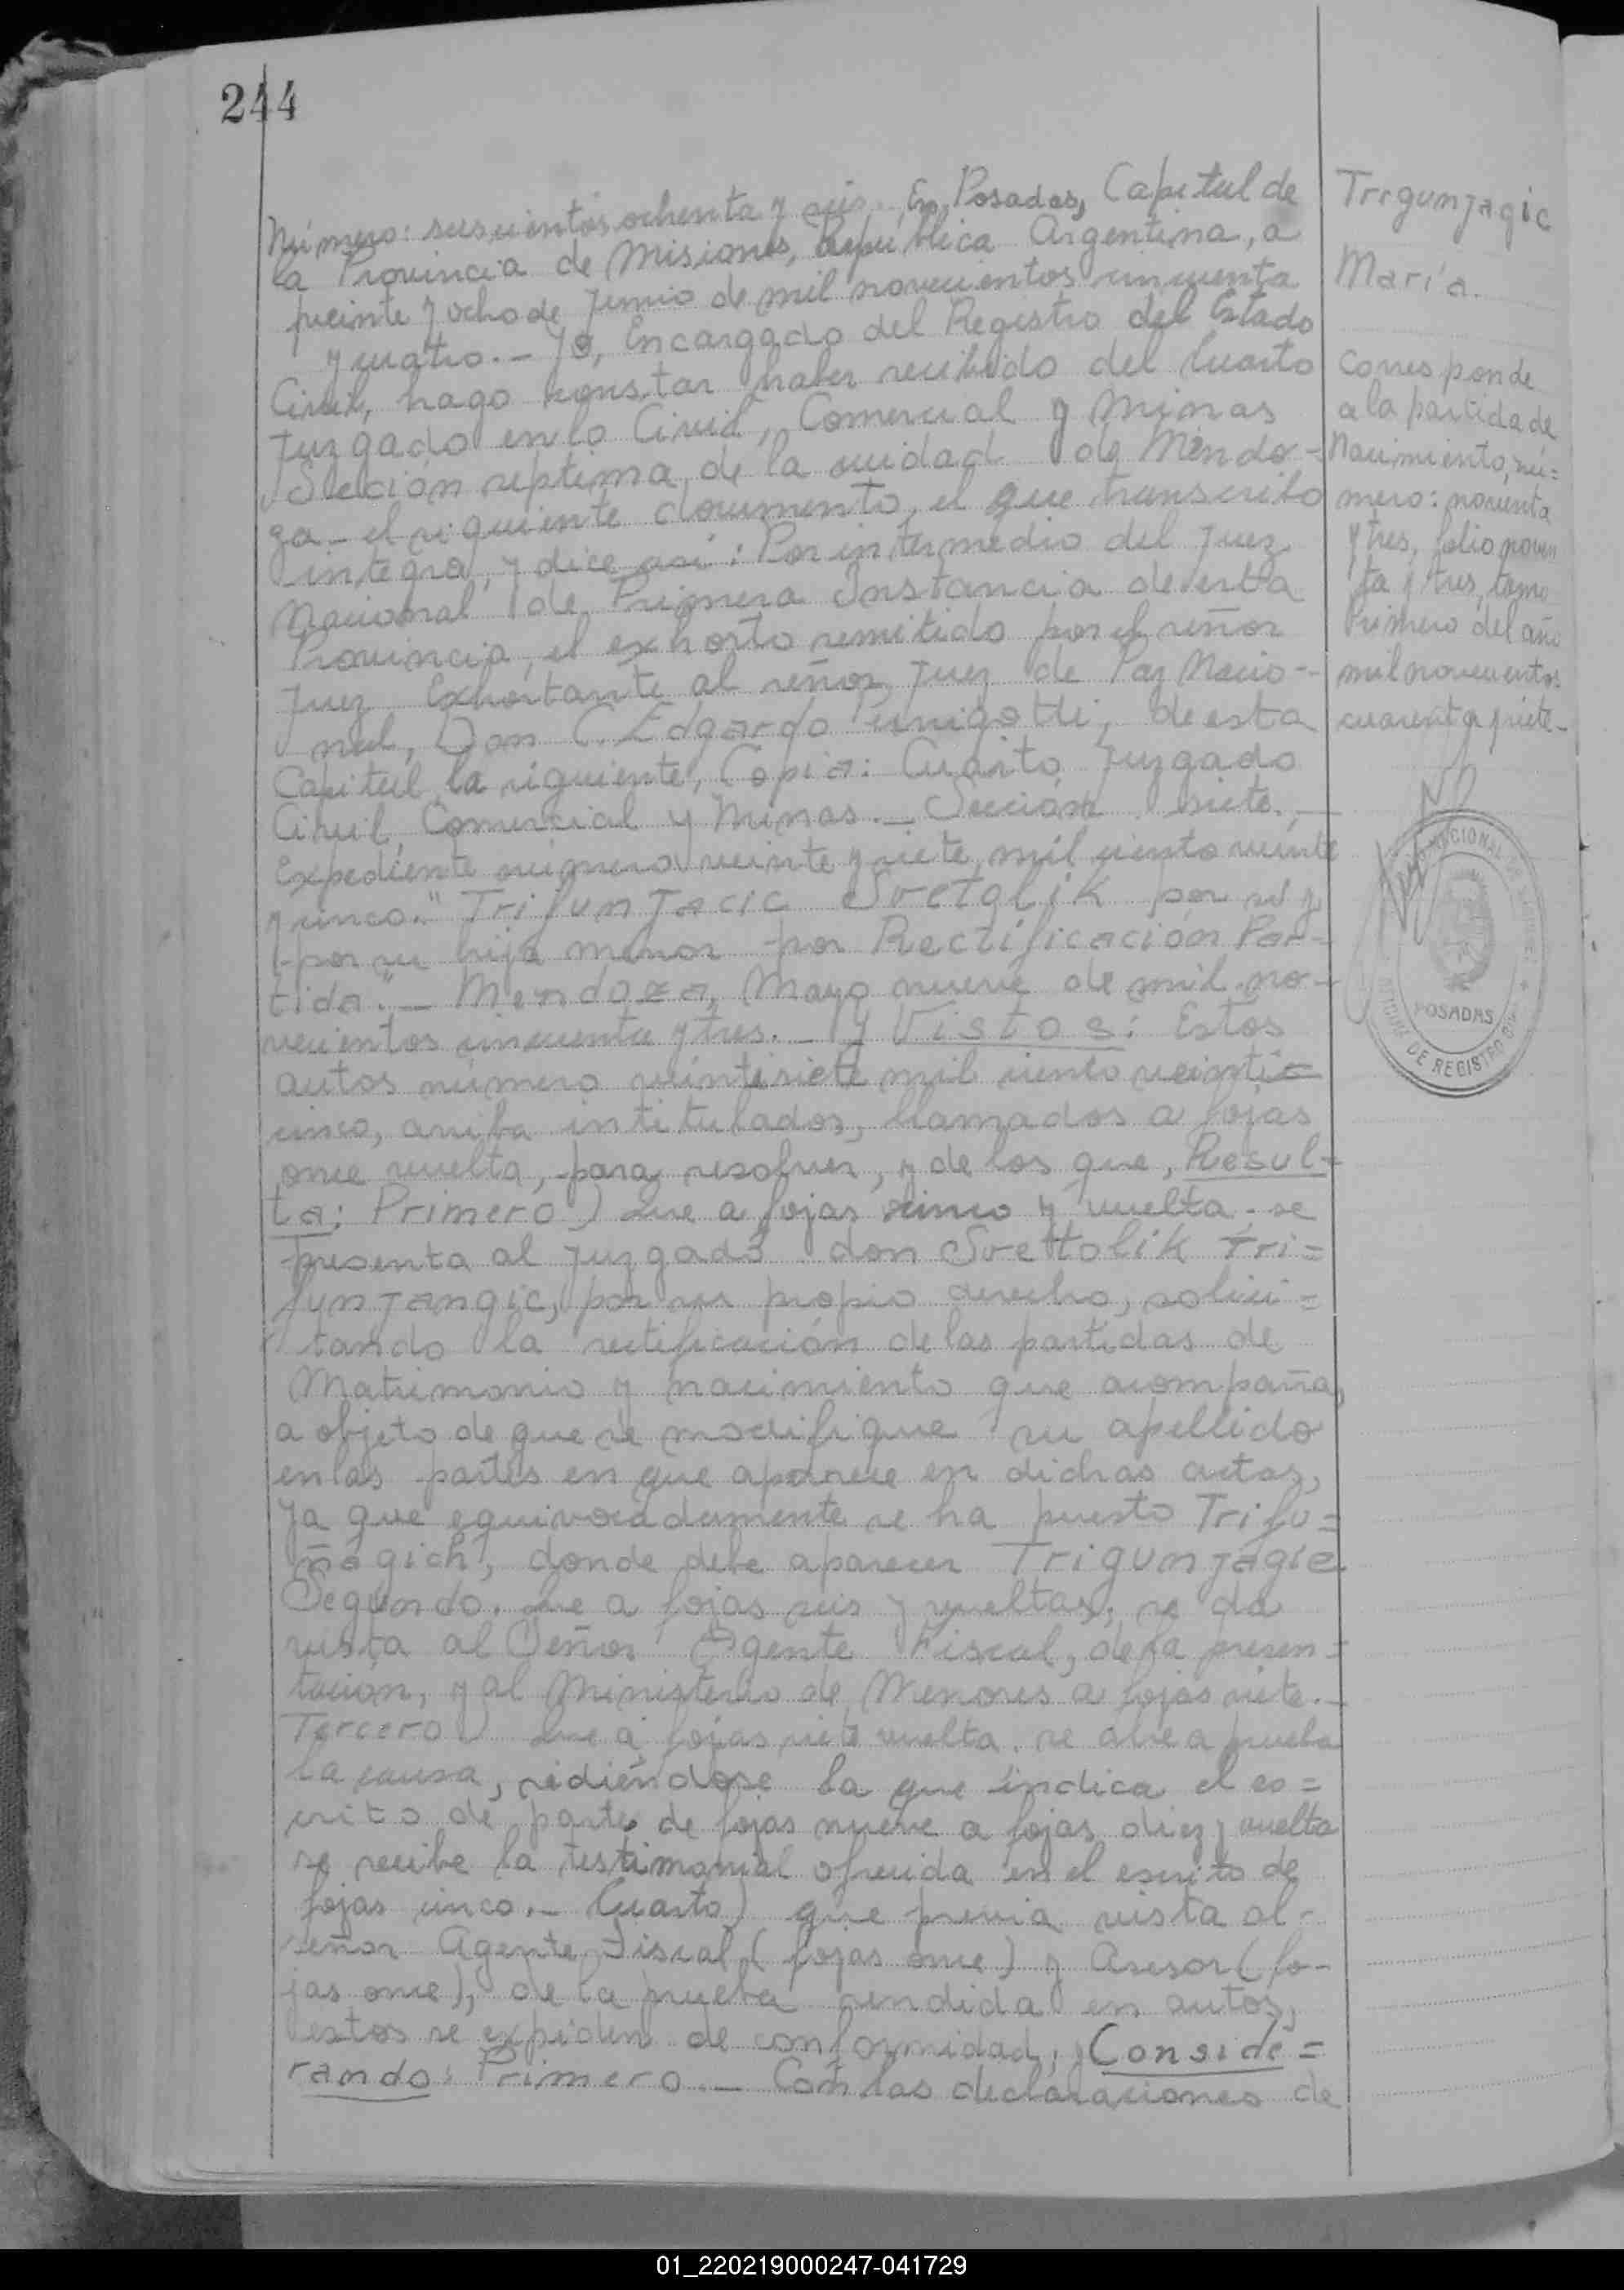 244
Número: seiscientos ochenta y seis. En Posadas, Capital de
la Provincia de Misiones, República Argentina, a
veinte y ocho de Junio de mil novecientos cincuenta
y cuatro.- Yo, Encargado del Registro del Estado
Civil, hago constar haber recibido del Cuarto
Juzgado en lo Civil, Comercial y Minas
Sección septima de la ciudad de Mendo-
za - el siguiente documento, el que transcribo
integra, y dice así: Por intermedio del Juez
Nacional de Primera Instancia de esta
Provincia, el exhorto remitido por el señor
Juez Exhortante al señor Juez de Paz Nacio-
nal, Don C. Edgardo, de esta
Capital la siguiente, Copia: Cuarto Juzgado
Civil, Comercial y Minas.- Sección siete.,-
Expediente número veinte y siete mil ciento veinte
y cinco." Trifunjacic Svetalik por sí y
por su hija menor por Rectificación Par-
tida".- Mendoza, Mayo nueve de mil no-
vecientos cincuenta y tres.- Y Vistos: Estos
autos número veintisiete mil ciento veinti-
cinco, arriba intitulados, llamados a fojas
once vuelta, para resolver, y de los que, Resul-
ta: Primero) Que a fojas cinco y vuelta. se
presenta al juzgado don Svettolik Tri=
funjangic, por su propio derecho, solici=
tando la rectificación de las partidas de
Matrimonio y nacimiento que acompaña,
a objeto de que se modifique su apellido
en las partes en que aparece en dichas actas,
ya que equivocadamente se ha puesto Trifu=
ñagich, donde debe aparecer Trigunjagic
Segundo. Que a fojas seis y vueltas, se da
vista al Señor Agente Fiscal, de la presen=
tación, y al Ministerio de Menores a fojas siete.-
Tercero) Que a fojas siete vuelta. se abre a prueba
la causa, pidiéndose la que indica el es=
crito de parte de fojas nueve a fojas diez y vuelta
se recibe la testimonial ofrecida en el escrito de
fojas cinco.- Cuarto) que previa vista al
señor Agente Fiscal (fojas once) y Asesor (fo-
jas once), de la prueba rendida en autos,
estos se expiden de conformidad; y Conside=
rando: Primero.- Con las declaraciones de
Trigunjagic
María.
Corresponde
a la partida de
Nacimiento, nú=
mero: noventa
y tres, folio noven
ta y tres, tomo
Primero del año
mil novecientos
cuarenta y siete-
POSADAS
DE REGISTRO
01_220219000247-041729